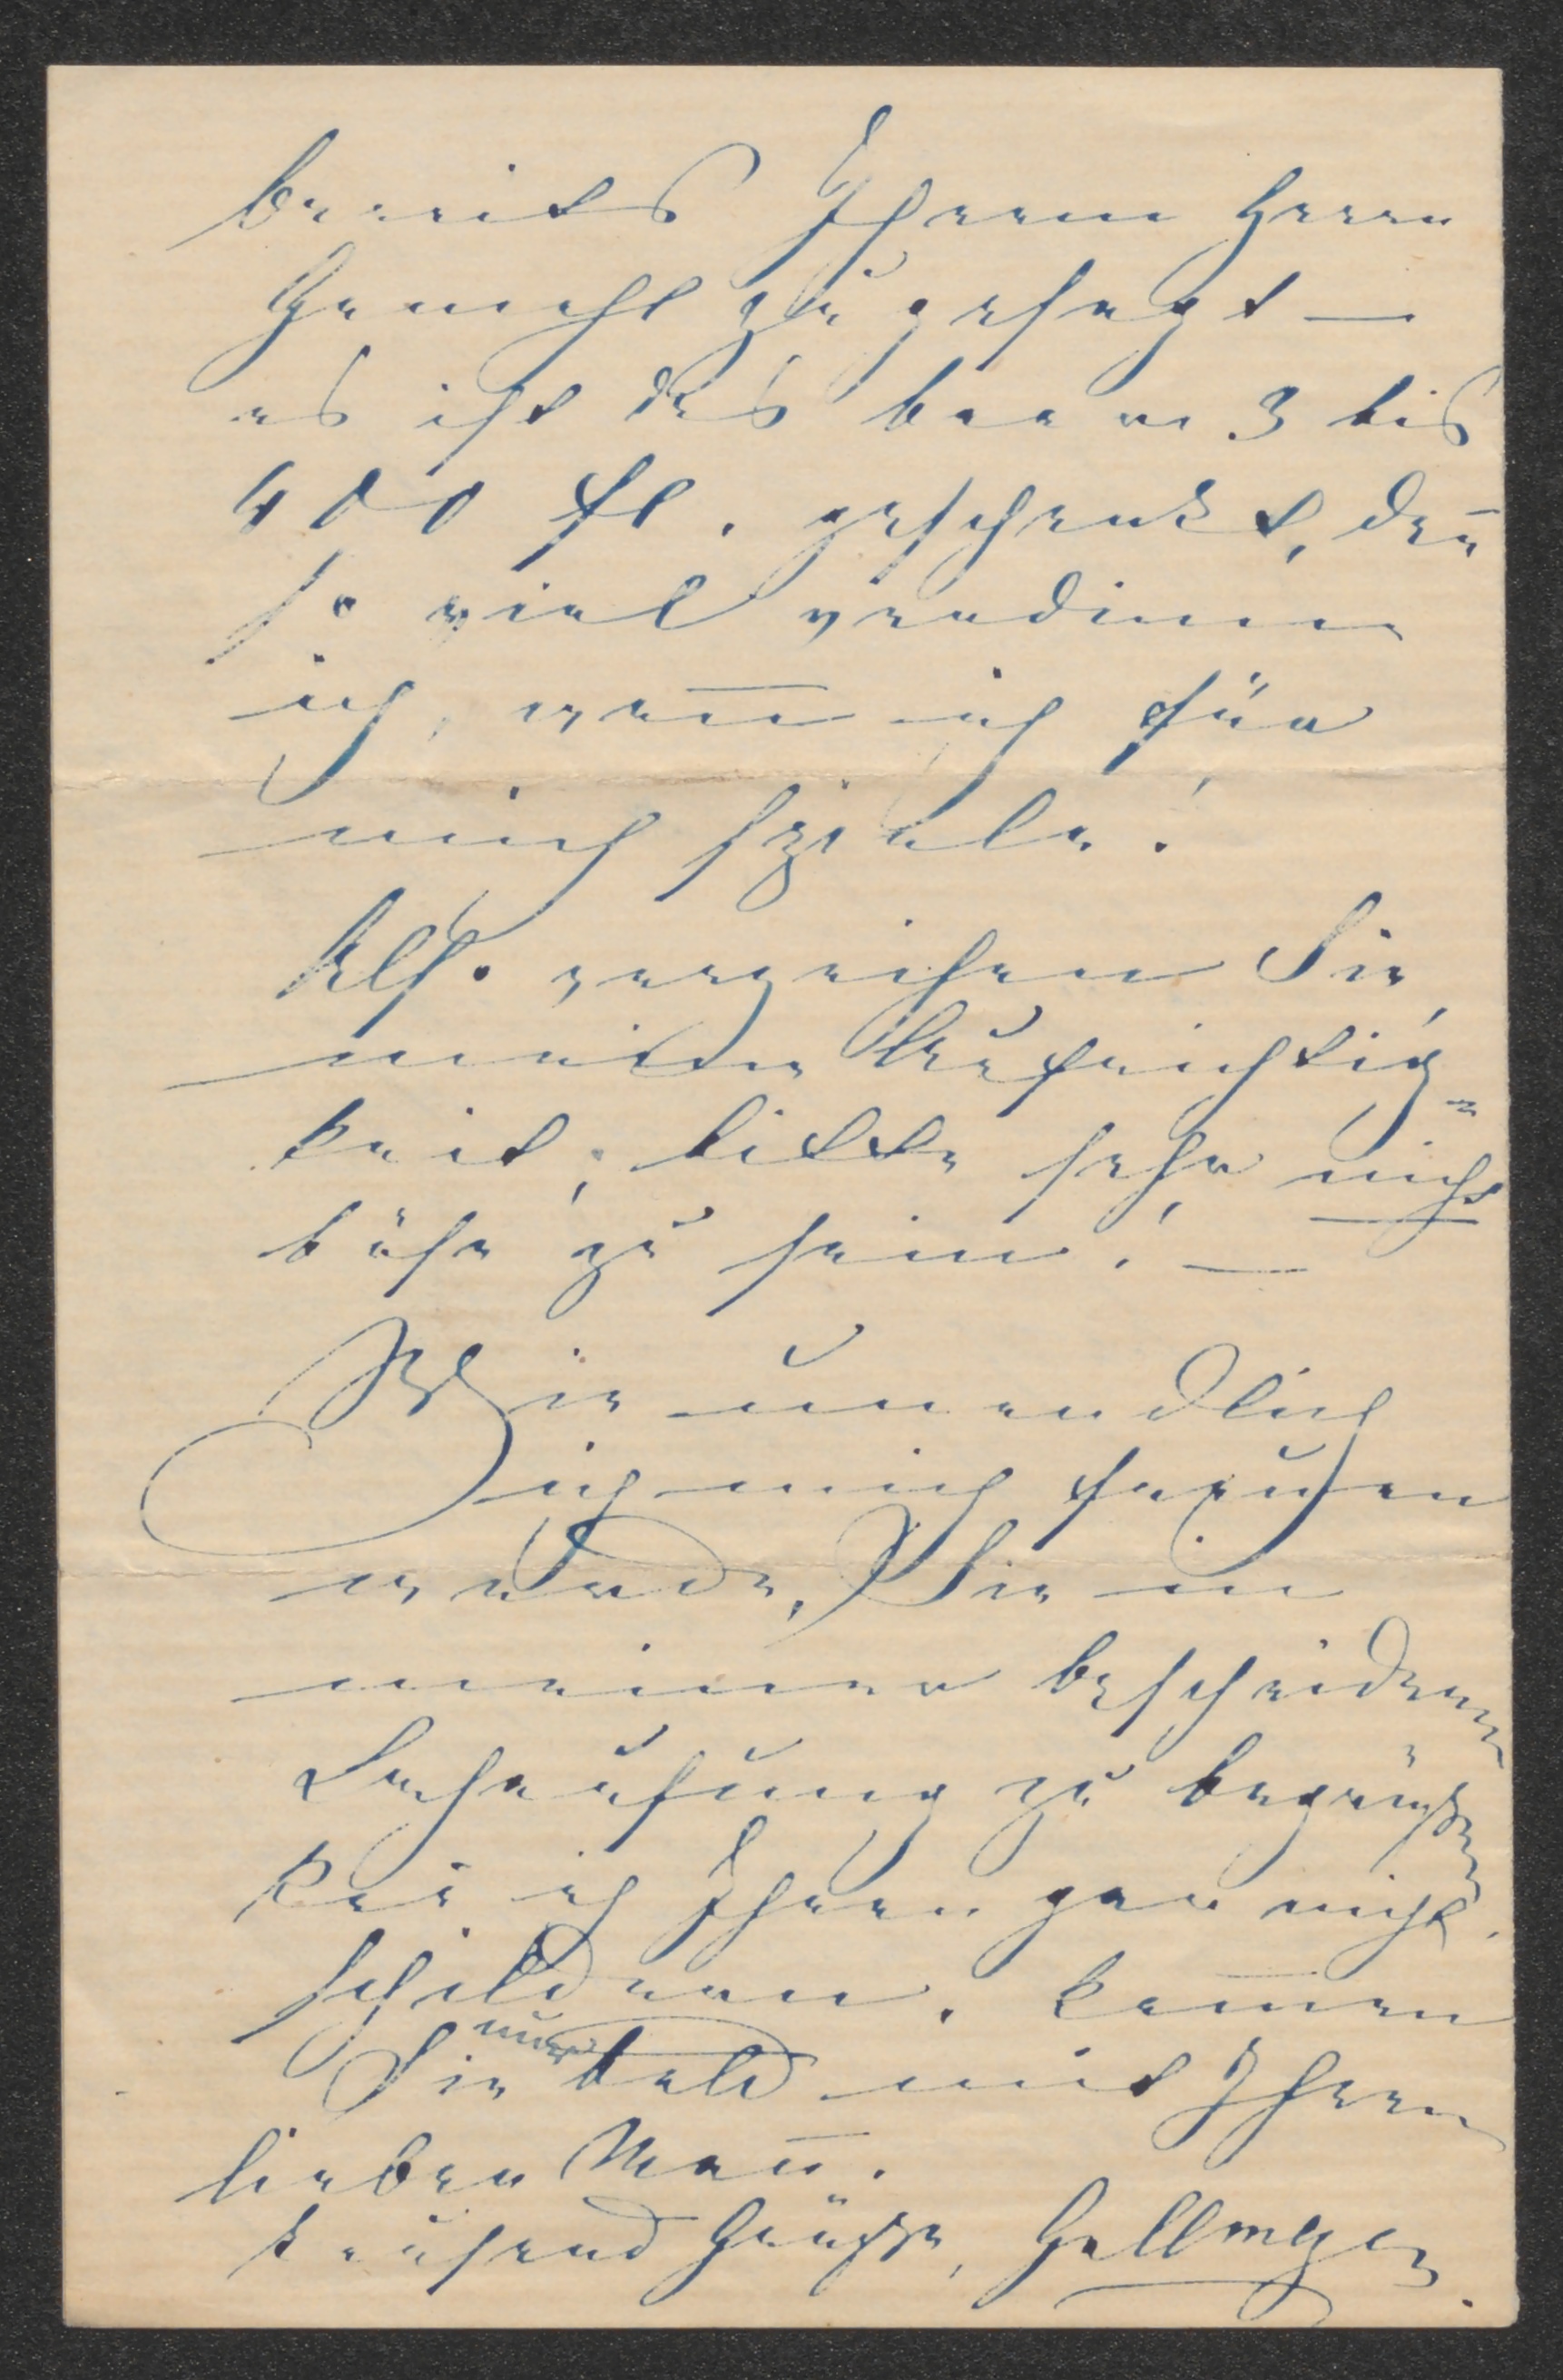 bereits Ihrem Herrn
Gemahl zugesagt —
es ist das baare 3 bis
400 fl. geschenkt, den̅
so viel verdiene
ich, wen̅ ich für
mich spiele!
Also verzeihen Sie
meine Aufrichtig=
keit; bitte sehr nicht
böse zu sein! —
Wie unendlich
ich mich freuen
werde, Sie in
meiner bescheidenen
Behausung zu begrüßen
kan̅ ich Ihnen gar nicht
schildern. Kom̅en
Sie nur bald mit Ihrem
lieben Man̅.
tausend Grüße,